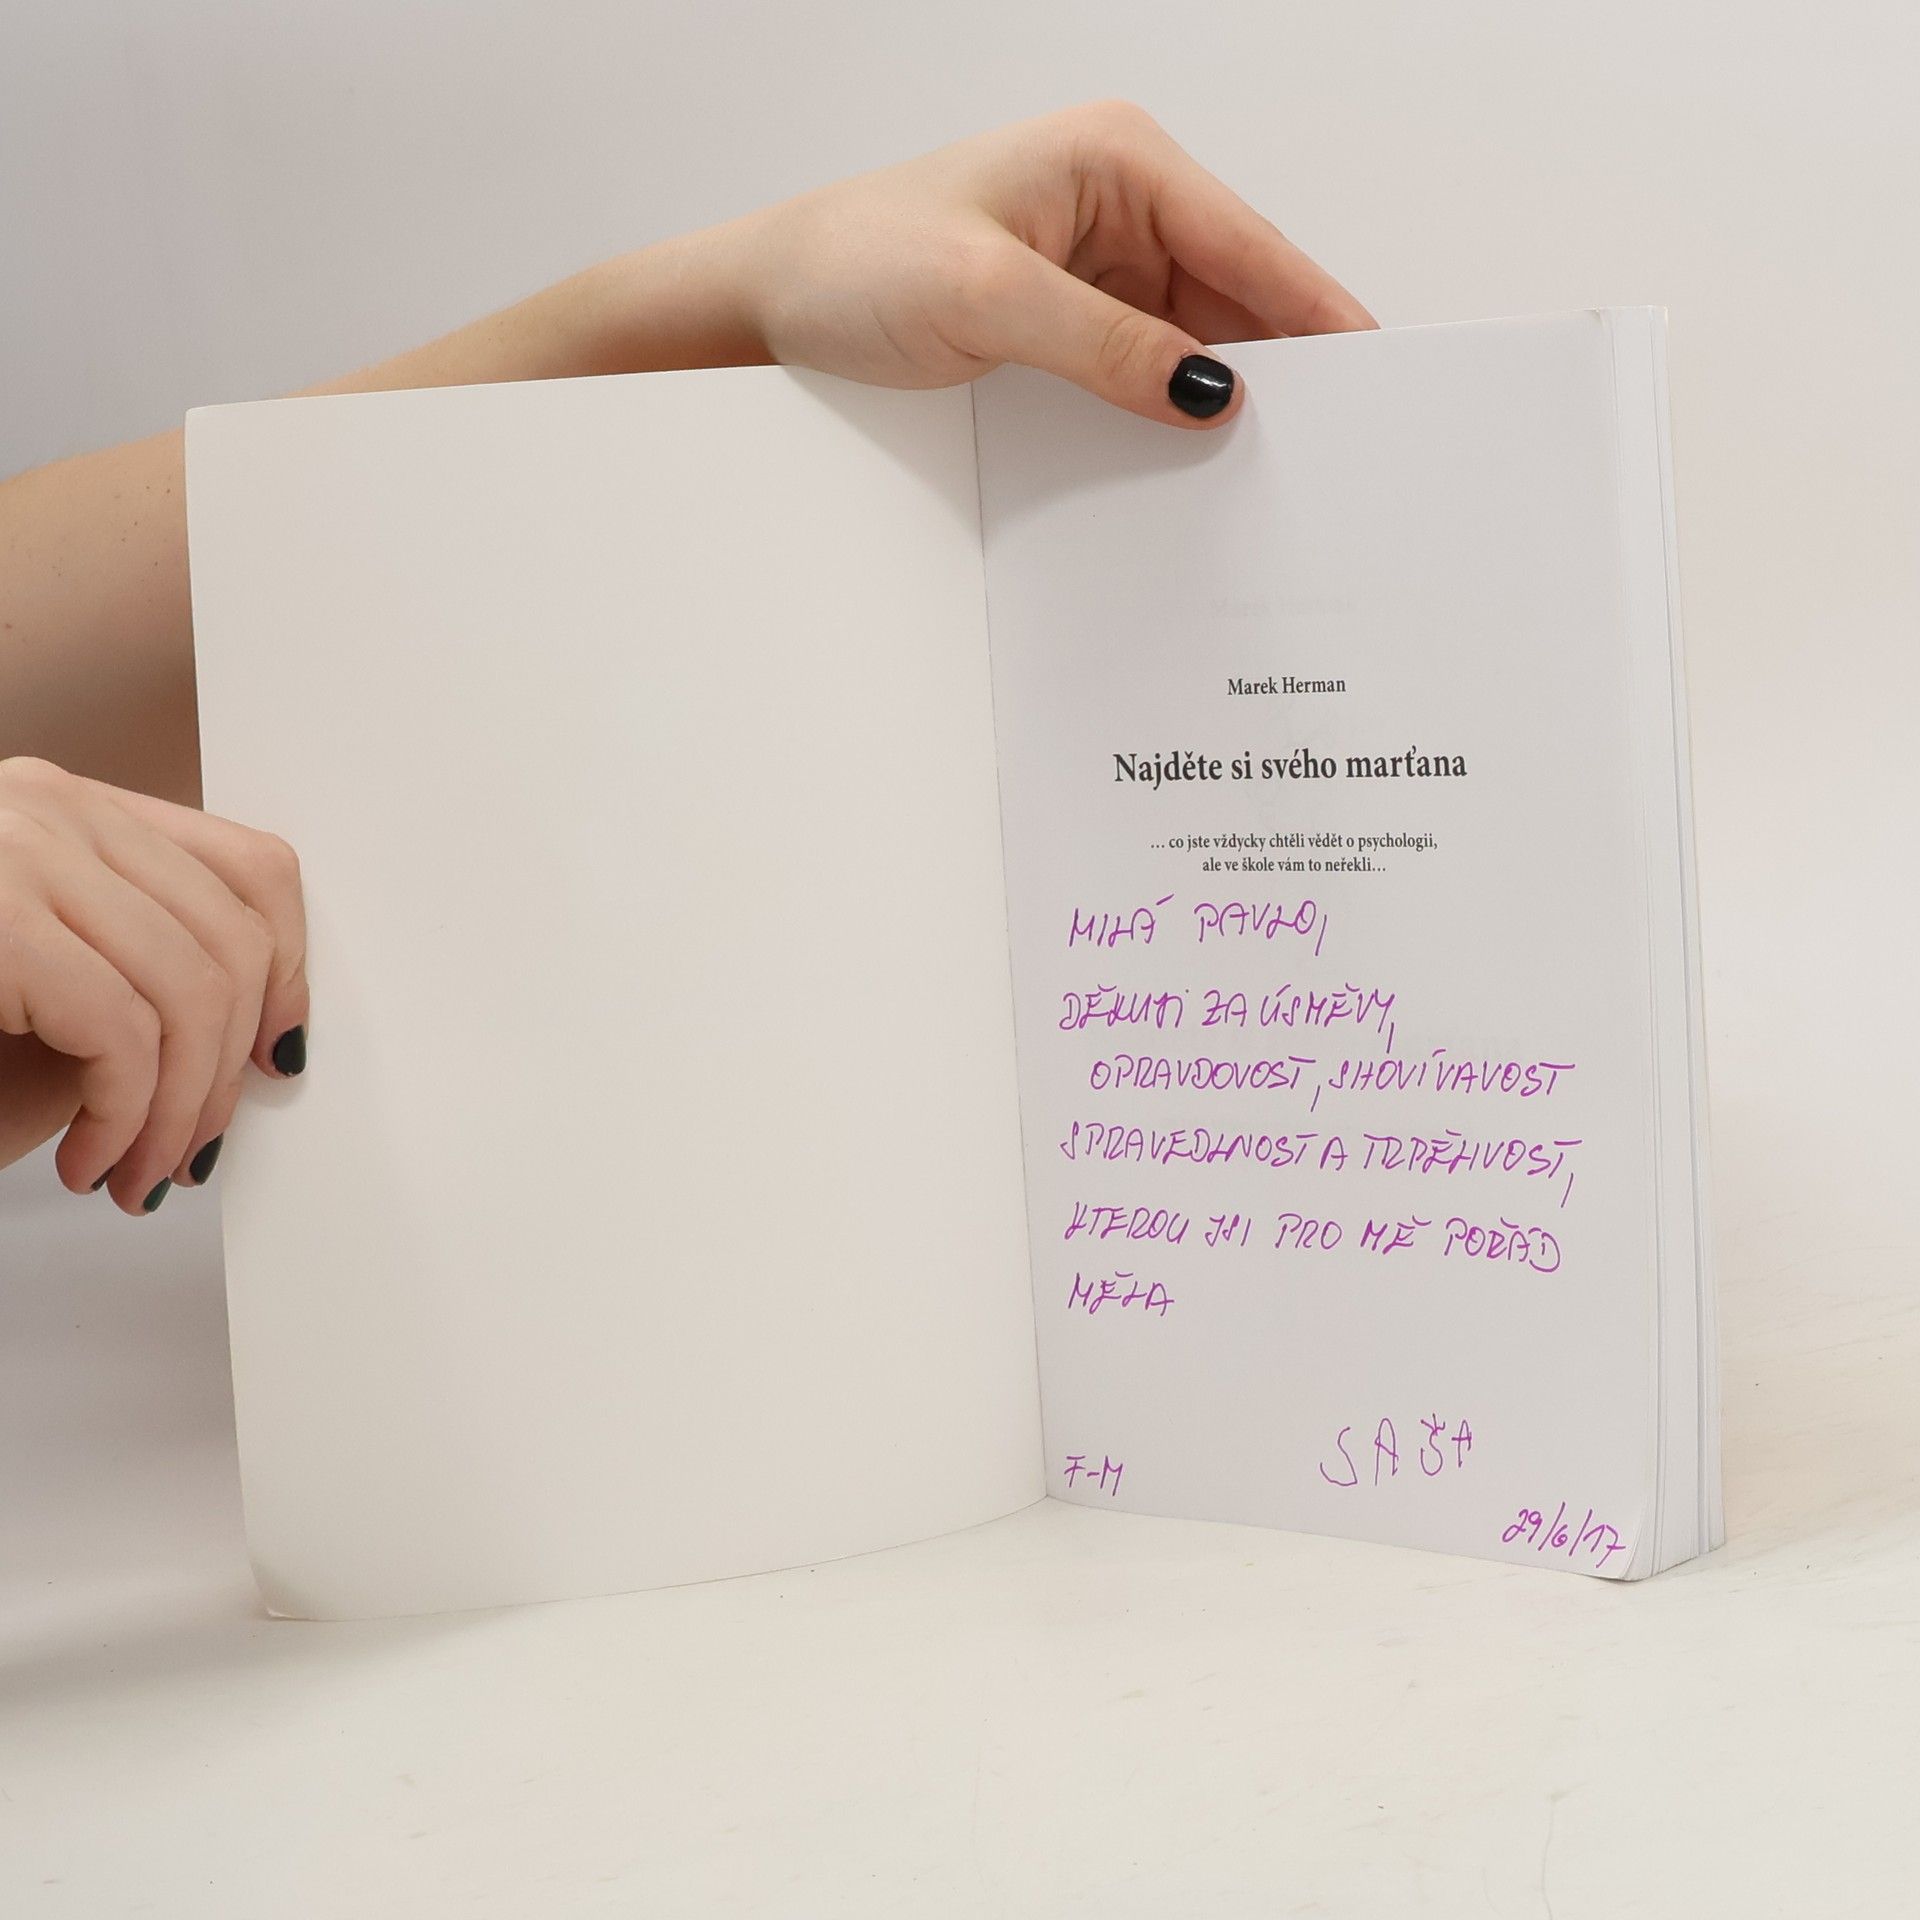 Marek Herman
Najděte si svého marťana
… co jste vždycky chtěli vědět o psychologii,
ale ve škole vám to neřekli…
MILÁ PAVLO,
DĚKUJI ZA ÚSMĚVY,
OPRAVDOVOST, SHOVÍVAVOST
SPRAVEDLNOST A TRPĚLIVOST,
KTEROU JSI PRO MĚ POŘÁD
MĚLA
SAŠA
F-M
29/6/17